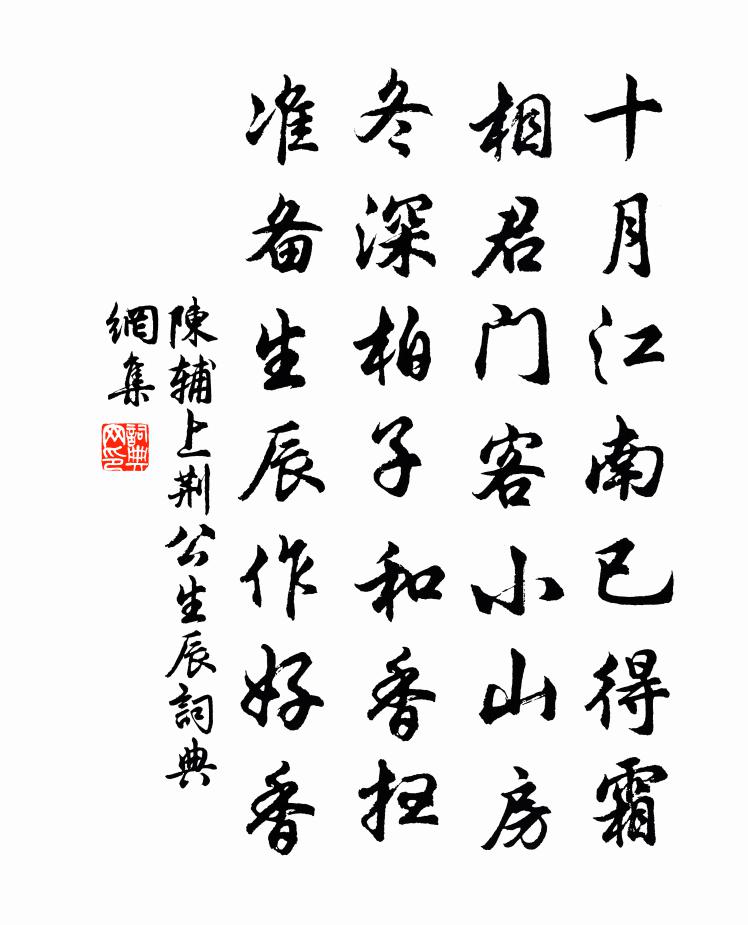 十月江南已得霜
相君门客小山房
冬深柏子和香捏
准备生辰作好香
陳輔上荆公生辰詞典
網集
詞典
网印